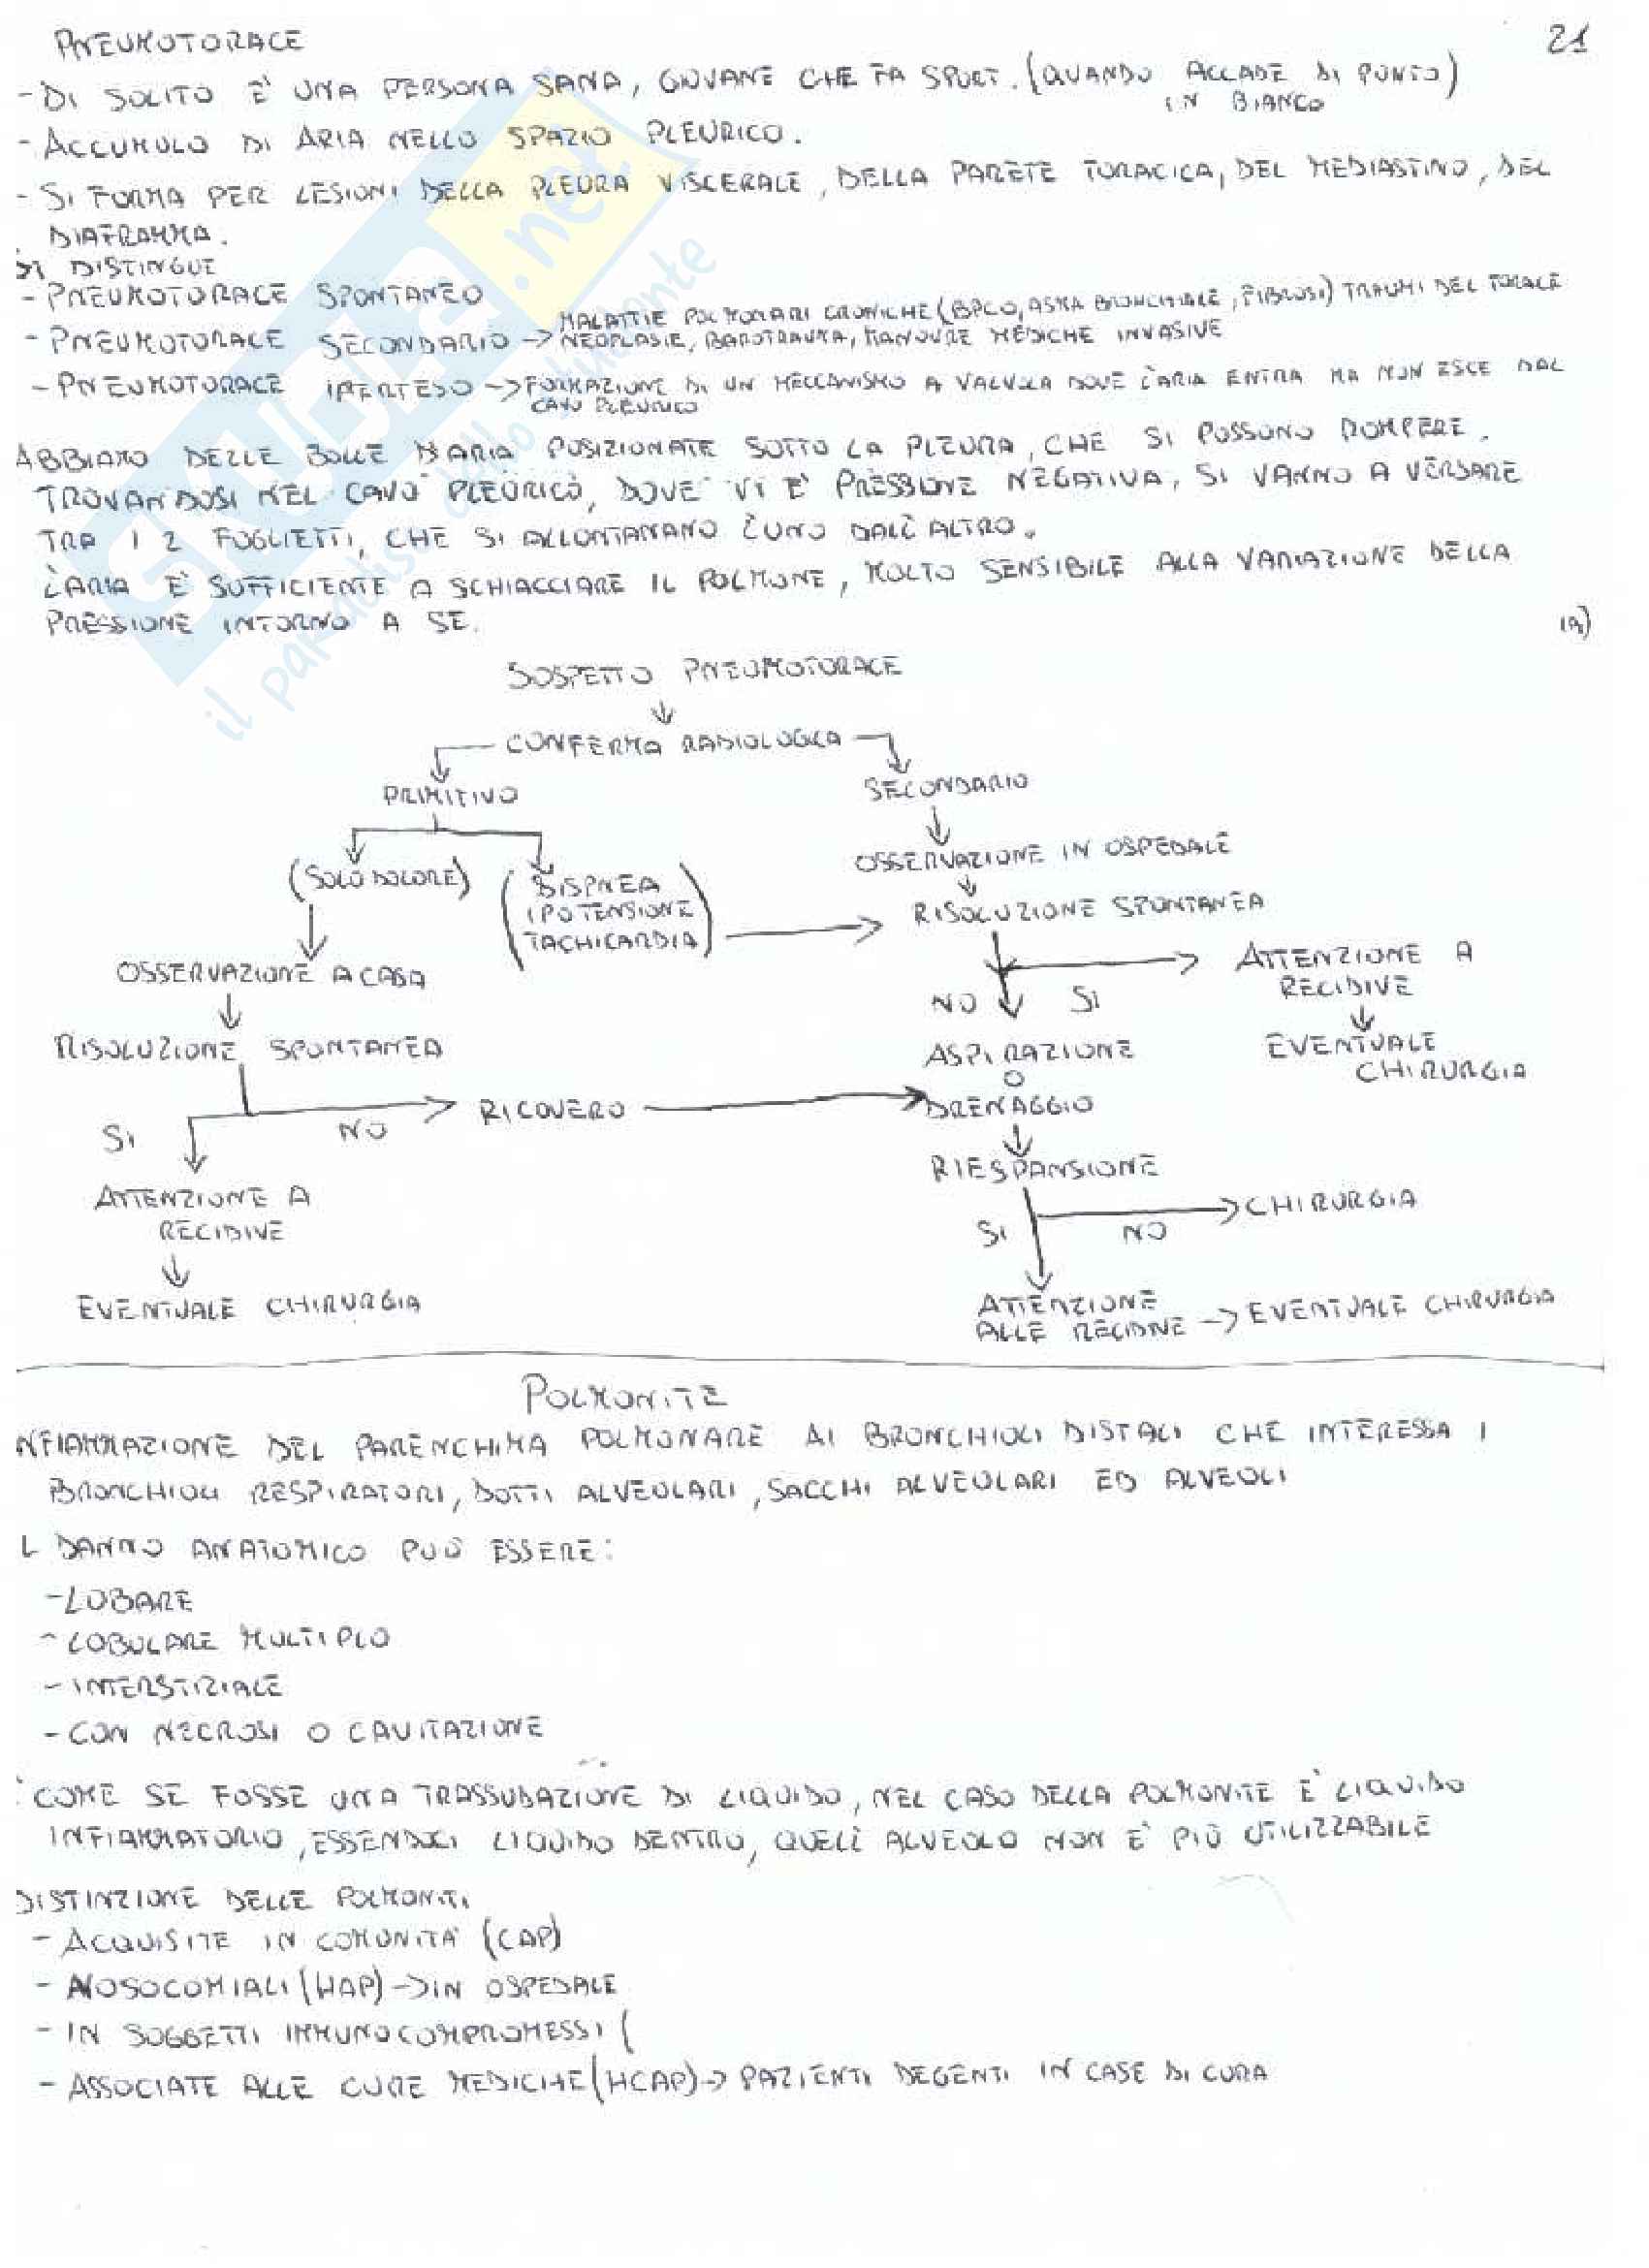 PNEUMOTORACE
21
- DI SOLITO È UNA PERSONA SANA, GIOVANE CHE FA SPORT. (QUANDO ACCADE DI PUNTO)
IN BIANCO
- ACCUMULO DI ARIA NELLO SPAZIO PLEURICO.
- SI FORMA PER LESIONI DELLA PLEURA VISCERALE, DELLA PARETE TORACICA, DEL MEDIASTINO, DEL
DIAFRAMMA.
SI DISTINGUE
- PNEUMOTORACE SPONTANEO
MALATTIE POLMONARI CRONICHE (BPCO, ASMA BRONCHIALE, FIBROSI) TRAUMI DEL TORACE
- PNEUMOTORACE SECONDARIO -> NEOPLASIE, BAROTRAUMA, MANOVRE MEDICHE INVASIVE
- PNEUMOTORACE IPERTESO -> FORMAZIONE DI UN MECCANISMO A VALVOLA DOVE L'ARIA ENTRA MA NON ESCE DAL
CAVO PLEURICO
ABBIAMO DELLE BOLLE D'ARIA POSIZIONATE SOTTO LA PLEURA, CHE SI POSSONO ROMPERE.
TROVANDOSI NEL CAVO PLEURICO, DOVE VI È PRESSIONE NEGATIVA, SI VANNO A VERSARE
TRA I 2 FOGLIETTI, CHE SI ALLONTANANO L'UNO DALL'ALTRO.
L'ARIA È SUFFICIENTE A SCHIACCIARE IL POLMONE, MOLTO SENSIBILE ALLA VARIAZIONE DELLA
PRESSIONE INTORNO A SE.
SKUOLA.net
il paradiso dello studente
SOSPETTO PNEUMOTORACE
CONFERMA RADIOLOGICA
PRIMITIVO
SECONDARIO
(SOLO DOLORE)
(DISPNEA
IPOTENSIONE
TACHICARDIA)
OSSERVAZIONE IN OSPEDALE
RISOLUZIONE SPONTANEA
OSSERVAZIONE A CASA
ATTENZIONE A
RECIDIVE
NO SI
RISOLUZIONE SPONTANEA
ASPIRAZIONE
O
DRENAGGIO
EVENTUALE
CHIRURGIA
SI NO
RICOVERO
RIESPANSIONE
ATTENZIONE A
RECIDIVE
SI NO
CHIRURGIA
EVENTUALE CHIRURGIA
ATTENZIONE
ALLE RECIDIVE -> EVENTUALE CHIRURGIA
POLMONITE
NFIAMMAZIONE DEL PARENCHIMA POLMONARE AI BRONCHIOLI DISTALI CHE INTERESSA I
BRONCHIOLI RESPIRATORI, DOTTI ALVEOLARI, SACCHI ALVEOLARI ED ALVEOLI
L DANNO ANATOMICO PUÒ ESSERE:
- LOBARE
- LOBULARE MULTIPLO
- INTERSTIZIALE
- CON NECROSI O CAVITAZIONE
COME SE FOSSE UNA TRASSUDAZIONE DI LIQUIDO, NEL CASO DELLA POLMONITE È LIQUIDO
INFIAMMATORIO, ESSENDOCI LIQUIDO DENTRO, QUELL'ALVEOLO NON È PIÙ UTILIZZABILE
DISTINZIONE DELLE POLMONITI
- ACQUISITE IN COMUNITÀ (CAP)
- NOSOCOMIALI (HAP) -> IN OSPEDALE
- IN SOGGETTI IMMUNOCOMPROMESSI (
- ASSOCIATE ALLE CURE MEDICHE (HCAP) -> PAZIENTI DEGENTI IN CASE DI CURA